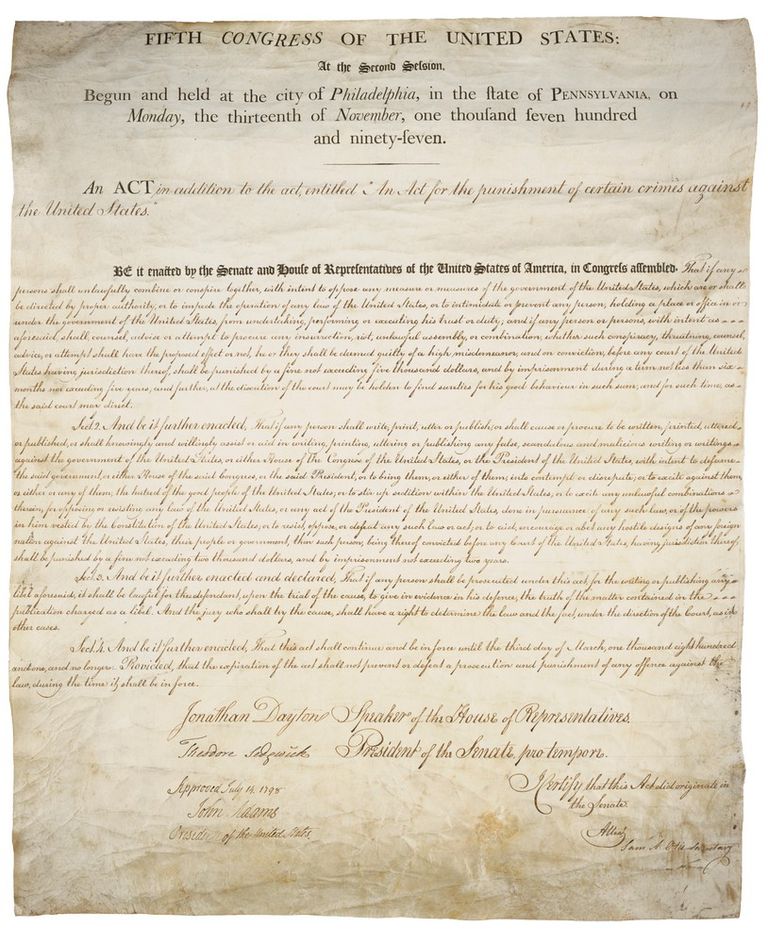 FIFTH CONGRESS OF THE UNITED STATES:
At the Second Seſsion,
Begun and held at the city of Philadelphia, in the ſtate of PENNSYLVANIA, on
Monday, the thirteenth of November, one thouſand ſeven hundred
and ninety-ſeven.
An ACT in addition to the act, entitled "An Act for the punishment of certain crimes against
the United States."
BE it enacted by the Senate and House of Representatives of the United States of America, in Congress assembled. That if any
persons shall unlawfully combine or conspire together, with intent to oppose any measure or measures of the government of the United States, which are or shall
be directed by proper authority, or to impede the operation of any law of the United States, or to intimidate or prevent any person, holding a place or office in or
under the government of the United States, from undertaking, performing or executing his trust or duty; and if any person or persons, with intent as
aforesaid, shall counsel, advise or attempt to procure any insurrection, riot, unlawful assembly, or combination, whether such conspiracy, threatning, counsel,
advice, or attempt shall have the proposed effect or not, he or they shall be deemed guilty of a high misdemeanor, and on conviction, before any court of the United
States having jurisdiction thereof, shall be punished by a fine not exceeding five thousand dollars, and by imprisonment during a term not less than six
months nor exceeding five years; and further, at the discretion of the court may be holden to find sureties for his good behaviour in such sum, and for such time, as
the said court may direct.
Sect. 2. And be it further enacted, That if any person shall write, print, utter or publish, or shall cause or procure to be written, printed, uttered
or published, or shall knowingly and willingly assist or aid in writing, printing, uttering or publishing any false, scandalous and malicious writing or writings
against the government of the United States, or either House of the Congress of the United States, or the President of the United States, with intent to defame
the said government, or either House of the said Congress, or the said President, or to bring them, or either of them, into contempt or disrepute; or to excite against them,
or either or any of them, the hatred of the good people of the United States, or to stir up sedition within the United States, or to excite any unlawful combinations
therein, for opposing or resisting any law of the United States, or any act of the President of the United States, done in pursuance of any such law, or of the powers
in him vested by the Constitution of the United States, or to resist, oppose, or defeat any such law or act, or to aid, encourage or abet any hostile designs of any foreign
nation against the United States, their people or government, then such person, being thereof convicted before any Court of the United States, having jurisdiction thereof,
shall be punished by a fine not exceeding two thousand dollars, and by imprisonment not exceeding two years.
Sect. 3. And be it further enacted and declared, That if any person shall be prosecuted under this act, for the writing or publishing any
libel aforesaid, it shall be lawful for the defendant, upon the trial of the cause, to give in evidence in his defence, the truth of the matter contained in the
publication charged as a libel. And the jury who shall try the cause, shall have a right to determine the law and the fact, under the direction of the Court, as in
other cases.
Sect. 4. And be it further enacted, That this act shall continue and be in force until the third day of March, one thousand eight hundred
and one, and no longer: Provided, that the expiration of the act shall not prevent or defeat a prosecution and punishment of any offence against the
law, during the time it shall be in force.
Jonathan Dayton Speaker of the House of Representatives.
Theodore Sedgwick President of the Senate, pro tempore.
I Certify that this Act did originate in
the Senate.
Approved July 14, 1798
John Adams
President of the United States.
Attest,
Sam. A. Otis Secretary